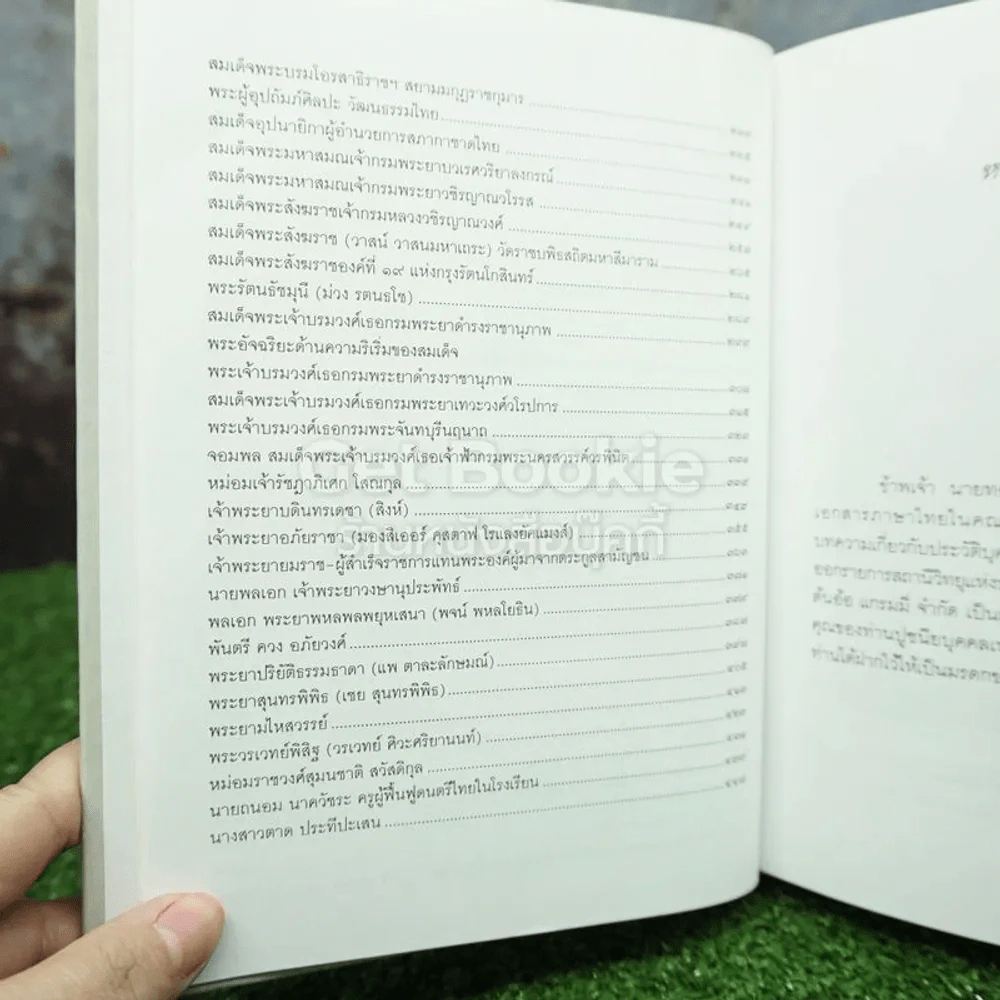 สมเด็จพระบรมโอรสาธิราชฯ สยามมกุฎราชกุमาร
พระผู้อุปถัมภ์ศิลปะ วัฒนธรรมไทย
สมเด็จอุปนายิกาผู้อำนวยการสภากาชาดไทย
สมเด็จพระมหาสมณเจ้ากรมพระยาปวเรศวริยาลงกรณ์
สมเด็จพระมหาสมณเจ้ากรมพระยาวชิรญาณวโรรส
สมเด็จพระสังฆราชเจ้ากรมหลวงวชิรญาณวงศ์
สมเด็จพระสังฆราช (วาสน์ วาสนมหาเถระ) วัดราชบพิธสถิตมหาสีมาราม
สมเด็จพระสังฆราชองค์ที่ ๑๙ แห่งกรุงรัตนโกสินทร์
พระรัตนธัชมุนี (ม่วง รตนธโช)
สมเด็จพระเจ้าบรมวงศ์เธอกรมพระยาดำรงราชานุภาพ
พระอัจฉริยะด้านความริเริ่มของสมเด็จ
พระเจ้าบรมวงศ์เธอกรมพระยาดำรงราชานุภาพ
สมเด็จพระเจ้าบรมวงศ์เธอกรมพระยาเทวะวงศ์วโรปการ
พระเจ้าบรมวงศ์เธอกรมพระจันทบุรีนฤนาถ
จอมพล สมเด็จพระเจ้าบรมวงศ์เธอเจ้าฟ้ากรมพระนครสวรรค์วรพินิต
หม่อมเจ้ารัชฎาภิเศก โสณกุล
เจ้าพระยาบดินทรเดชา (สิงห์)
เจ้าพระยาอภัยราชา (มองสิเออร์ คุสตาฟ โรแลงยัคแมงส์) ๓๕๕
เจ้าพระยายมราช-ผู้สำเร็จราชการแทนพระองค์ผู้มาจากตระกูลสามัญชน
นายพลเอก เจ้าพระยาวงษานุประพัทธ์
พลเอก พระยาพหลพลพยุหเสนา (พจน์ พหลโยธิน)
พันตรี ควง อภัยวงศ์
พระยาปริยัติธรรมธาดา (แพ ตาละลักษมณ์)
พระยาสุนทรพิพิธ (เชย สุนทรพิพิธ)
พระยามไหสวรรย์
พระวรเวทย์พิสิฐ (วรเวทย์ ศิวะศริยานนท์)
หม่อมราชวงศ์สุมนชาติ สวัสดิกุล
นายถนอม นาควัชระ ครูผู้ฟื้นฟูดนตรีไทยในโรงเรียน
นางสาวตาด ประทีปะเสน
Get Bookie
ร้านหนังสือบุ๊คกี้
ข้าพเจ้า
เอกสารภาษาไทยในคณ
บทความเกี่ยวกับประวัติบุค
ออกรายการสถานีวิทยุแห่งป
ต้นอ้อ แกรมมี่ จำกัด เป็น
คุณของท่านปูชนียบุคคลเห
ท่านได้ฝากไว้ให้เป็นมรดกข